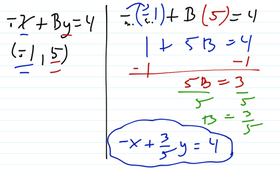 -x + By = 4
(-1, 5)
-(-1) + B(5) = 4
1 + 5B = 4
-1 -1
5B = 3
5 5
B = 3/5
-x + 3/5 y = 4